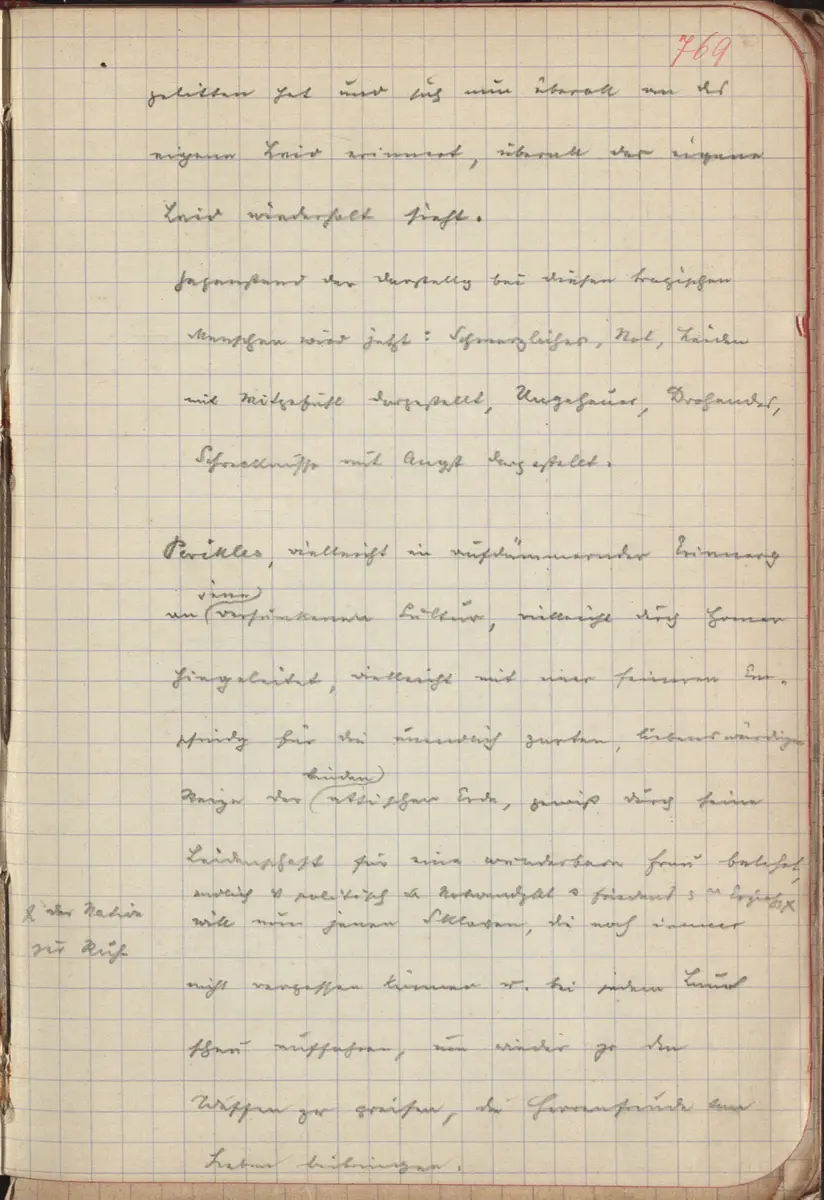 769
gelitten hat und sich nun überall an das
eigene Leid erinnert, überall das eigene
Leid wiederholt sieht.
Gegenstand der Darstellg bei diesen tragischen
Menschen wird jetzt: Schmerzliches, Not, Leiden
mit Mitgefühl dargestellt, Ungeheuer, Drohendes,
Schrecknisse mit Angst dargestellt.
Perikles, vielleicht in aufdämmernder Erinnerg
jene
an versunkene Cultur, vielleicht durch Homer
hingeleitet, vielleicht mit einer feineren Em-
pfindg für die unendlich zarten, liebenswürdigen
Reize der attischen Erde, gewiß durch seine
Leidenschaft für eine wunderbare Frau belehrt,
endlich politisch Notwendigkt Friedens
der Nation
will nun jenen Sklaven, die noch immer
zur Ruhe
nicht vergessen können u. bei jedem Laut
scheu auffahren, um wieder zu den
Waffen zu greifen, die Herrenfreude am
Leben beibringen.